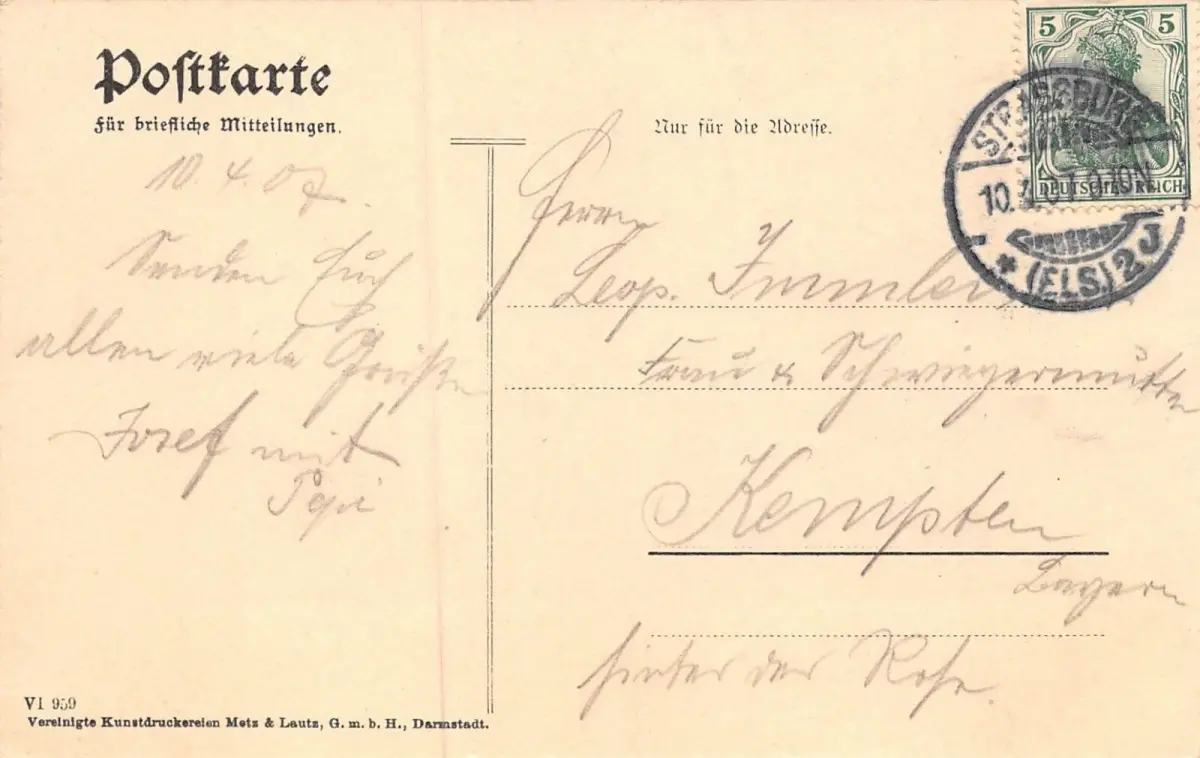 Postkarte
Für briefliche Mitteilungen.
10. 4. 07.
Senden Euch
allen viele Grüße
Josef mit
Pepi
VI 959
Vereinigte Kunstdruckereien Metz & Lautz, G. m. b. H., Darmstadt.
Nur für die Adresse.
Herrn
Leop. Immler
Frau & Schwiegermutter
Kempten
Bayern
hinter der Rose.
5 5
DEUTSCHES REICH
STRASSBURG
10.4.07.9-10N
* (ELS.) 2 J